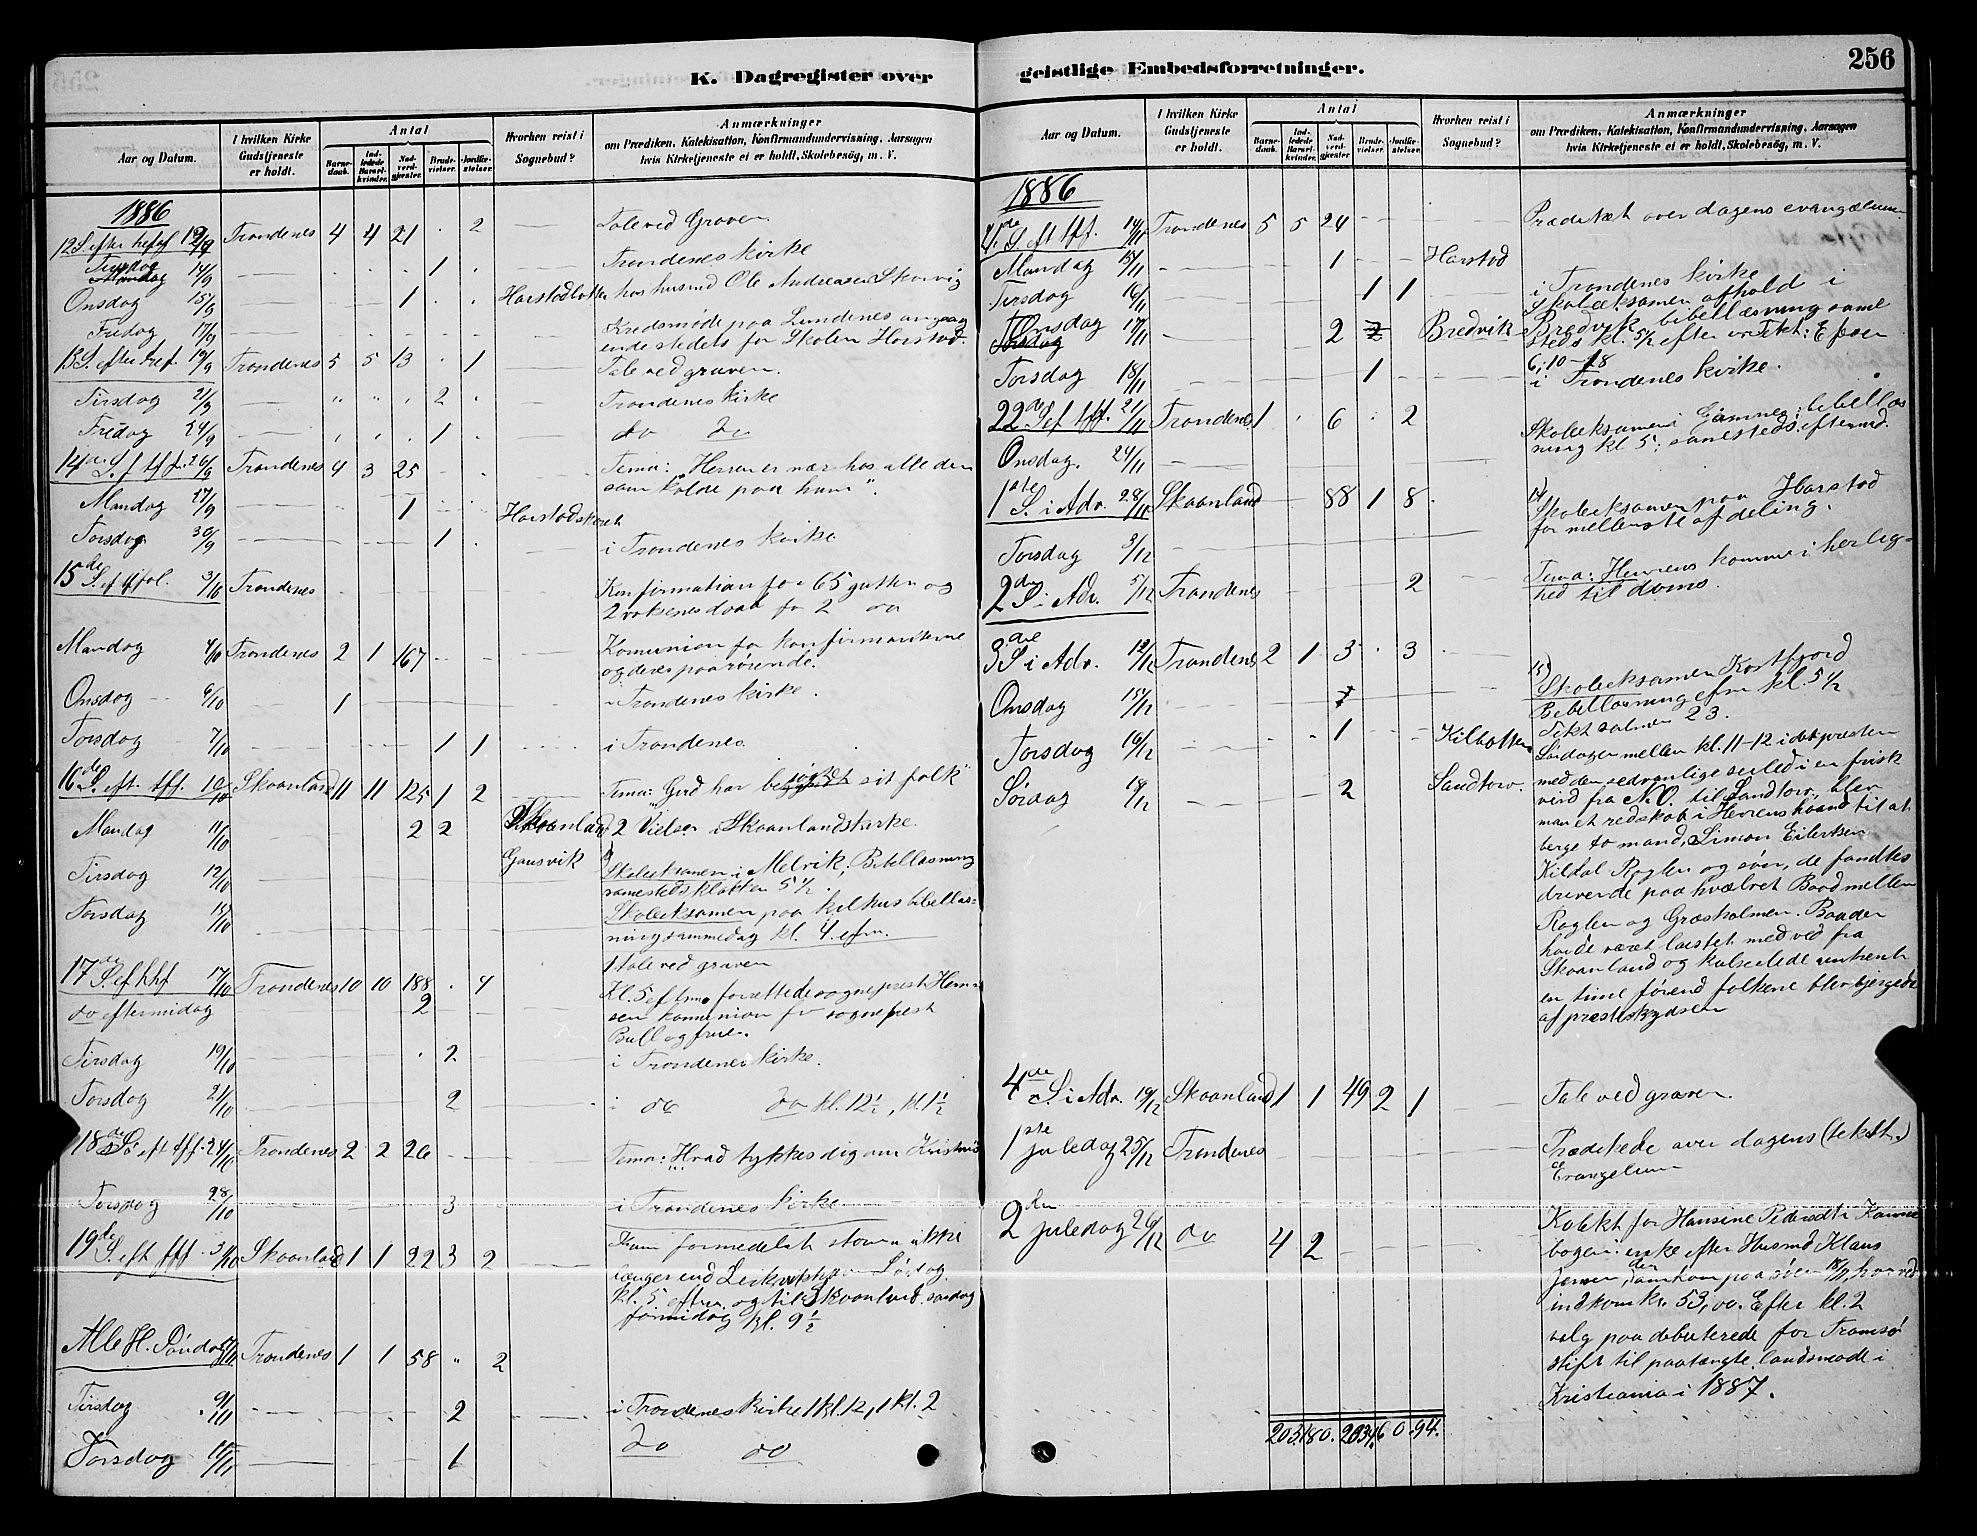 K. Dagregister over geistlige Embedsforretninger. 256
Aar og Datum. I hvilken Kirke Gudstjeneste er holdt. Antal Barne-daab. Ind-ledede Barsel-kvinder. Nad-verd-gjester. Brude-vielser. Jordfæ-stelser. Hvorhen reist i Sognebud? Anmærkninger
om Prædiken, Katekisation, Konfirmandundervisning, Aarsagen
hvis Kirketjeneste ei er holdt, Skolebesög, m. V.
1886
12 S. efter trefof 12/9 Trondenes 4 4 21 . 2 Tale ved Graven
Tirsdag 14/9 1 Trondenes kirke
Onsdag 15/9 1 hos husmd Ole Andreasen
Fredag 17/9 Kredsmøde paa Lundenes angaa
ende stedets for Skolen Harstad.
13 S. efter tref. 19/9 Trondenes 5 5 13 . 1 Tale ved graven.
Tirsdag 21/9 2 Trondenes kirke
Fredag 24/9 1 do do
14de S. ef tff. 26/9 Trondenes 4 3 25 Tema: "Herren er nær hos alle dem
som kalde paa ham".
Mandag 27/9 1
Torsdag 30/9 1 i Trondenes kirke
15de S. ef tf ol. 3/10 Trondenes Konfirmation for 65 gutter og
2 voksenes daab for 2 do
Mandag 4/10 Trondenes 2 1 167 Komunion for konfirmanterne
og deres paarørende.
Onsdag 6/10 1 i Trondenes kirke.
Torsdag 7/10 1 1 i Trondenes
16de S. eft. tff. 10/10 Skaanland 11 11 125 1 2 Tema: "Gud har besøgt sit folk"
Mandag 11/10 2 2 Skaanland 2 Vielser i Skaanlands kirke.
Gausvik
Tirsdag 12/10 Skoleeksamen i Melvik, Bibellæsning
samesteds klokken 5 1/2.
Torsdag Skoleeksamen paa Kilhus bibellæs-
ning sammedag kl. 4 efm.
17de S. ef thf 17/10 Trondenes 10 10 188 . 4 1 tale ved graven
do eftermidag 2 Kl. 5 eftm. forrettede sogneprest
komunion for sogneprest
Bull og frue.
Tirsdag 19/10 2 i Trondenes kirke.
Torsdag 21/10 2 i do do kl. 12 1/2, kl. 1 1/2
18de S. eft tff. 24/10 Trondenes 2 2 26 Tema: "Hvad tykkes dig om Kristus"
Torsdag 28/10 3 i Trondenes kirke
19de S. eft tff. 31/10 Skaanland 1 1 22 3 2 Kom formedelst storm ikke
længer end Lördag
kl. 5 eftm. og til Skaanland søndag
formidag kl. 9 1/2
Alle H. Söndag Trondenes 1 1 58 " 2
Tirsdag 9/11 2 i Trondenes kirke 1 kl. 12, 1 kl. 2
Torsdag 1 do do
Aar og Datum. I hvilken Kirke Gudstjeneste er holdt. Antal Barne-daab. Ind-ledede Barsel-kvinder. Nad-verd-gjester. Brude-vielser. Jordfæ-stelser. Hvorhen reist i Sognebud? Anmærkninger
om Prædiken, Katekisation, Konfirmandundervisning, Aarsagen
hvis Kirketjeneste ei er holdt, Skolebesög, m. V.
1886
21de S. eft tff. 14/11 Trondenes 5 5 24 over dagens evangelium
Mandag 15/11 1 Harstad
Tirsdag 16/11 1 1 i Trondenes kirke
Onsdag 17/11 2 2 Bredvik Skoleeksamen afhold i
Torsdag Bredvik, bibellæsning same
steds kl. 5 1/2 efter Efeser
6, 10-18
Torsdag 18/11 1 i Trondenes kirke.
22de S. ef tff. 21/11 Trondenes 1 . 6 . 2
Onsdag. 24/11 Skoleeksamen i bibellæs
ning kl 5, samesteds eftermd.
1ste S. i Adv. 28/11 Skaanland 88 1 8
Torsdag /12 Skoleeksamen paa Harstad
for mellemste afdeling.
2den S. i Adv. 5/12 Trondenes 2 Tema: Herrens komme i herlig-
hed til doms.
3die S. i Adv. 12/12 Trondenes 2 1 3 . 3
Onsdag 15/12 Skoleeksamen
Bibellæsning efm kl. 5 1/2
Tekt salmen 23.
Torsdag 16/12 1
Sördag 18/12 2 Sandtorv. Lördagen mellem kl. 11-12 idet presten
med den sedvanlige seiled i en frisk
vind fra N.O. til Sandtorv, blev
man et redskab i Herrens haand til at
berge to mand, Simon Eilertsen
Kildal Roglen og sön, de fandtes
drevende paa hvælvet Baad mellem
Roglen og Græsholmen. Baaden
havde været lastet med ved fra
Skaanland og kulseilede omtrent
en time förend folkene blev bjerget
af presteskydsen
4de S. i Adv. 19/12 Skaanland 1 1 49 2 1 Tale ved graven.
1ste juledag 25/12 Trondenes Prædikede over dagens (tekst)
Evangelium
2den juledag 26/12 do 4 2 Kolekt for Hansine Pedersdtr
bogen: enke efter Husmd Klaus
Jensen, der omkom paa søen hvorved
indkom kr. 53,00. Efter kl. 2
valg paa debuterede for Tromsö
stift til paatængte landsmøde i
Kristiania i 1887.
203 180. 2034. 60. 94.